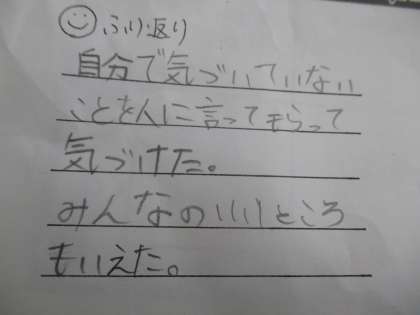 ふり返り
自分で気づいていない
ことを人に言ってもらって
気づけた。
みんなのいいところ
もいえた。